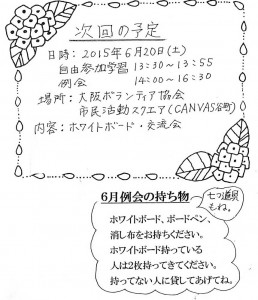 次回の予定
日時：2015年6月20日(土)
自由参加学習 13:30～13:55
例会 14:00～16:30
場所：大阪ボランティア協会
市民活動スクエア(CANVAS谷町)
内容：ホワイトボード・交流会
6月例会の持ち物
七つ道具
もね。
ホワイトボード、ボードペン、
消し布をお持ちください。
ホワイトボード持っている
人は2枚持ってきてください。
持ってない人に貸してあげてね。